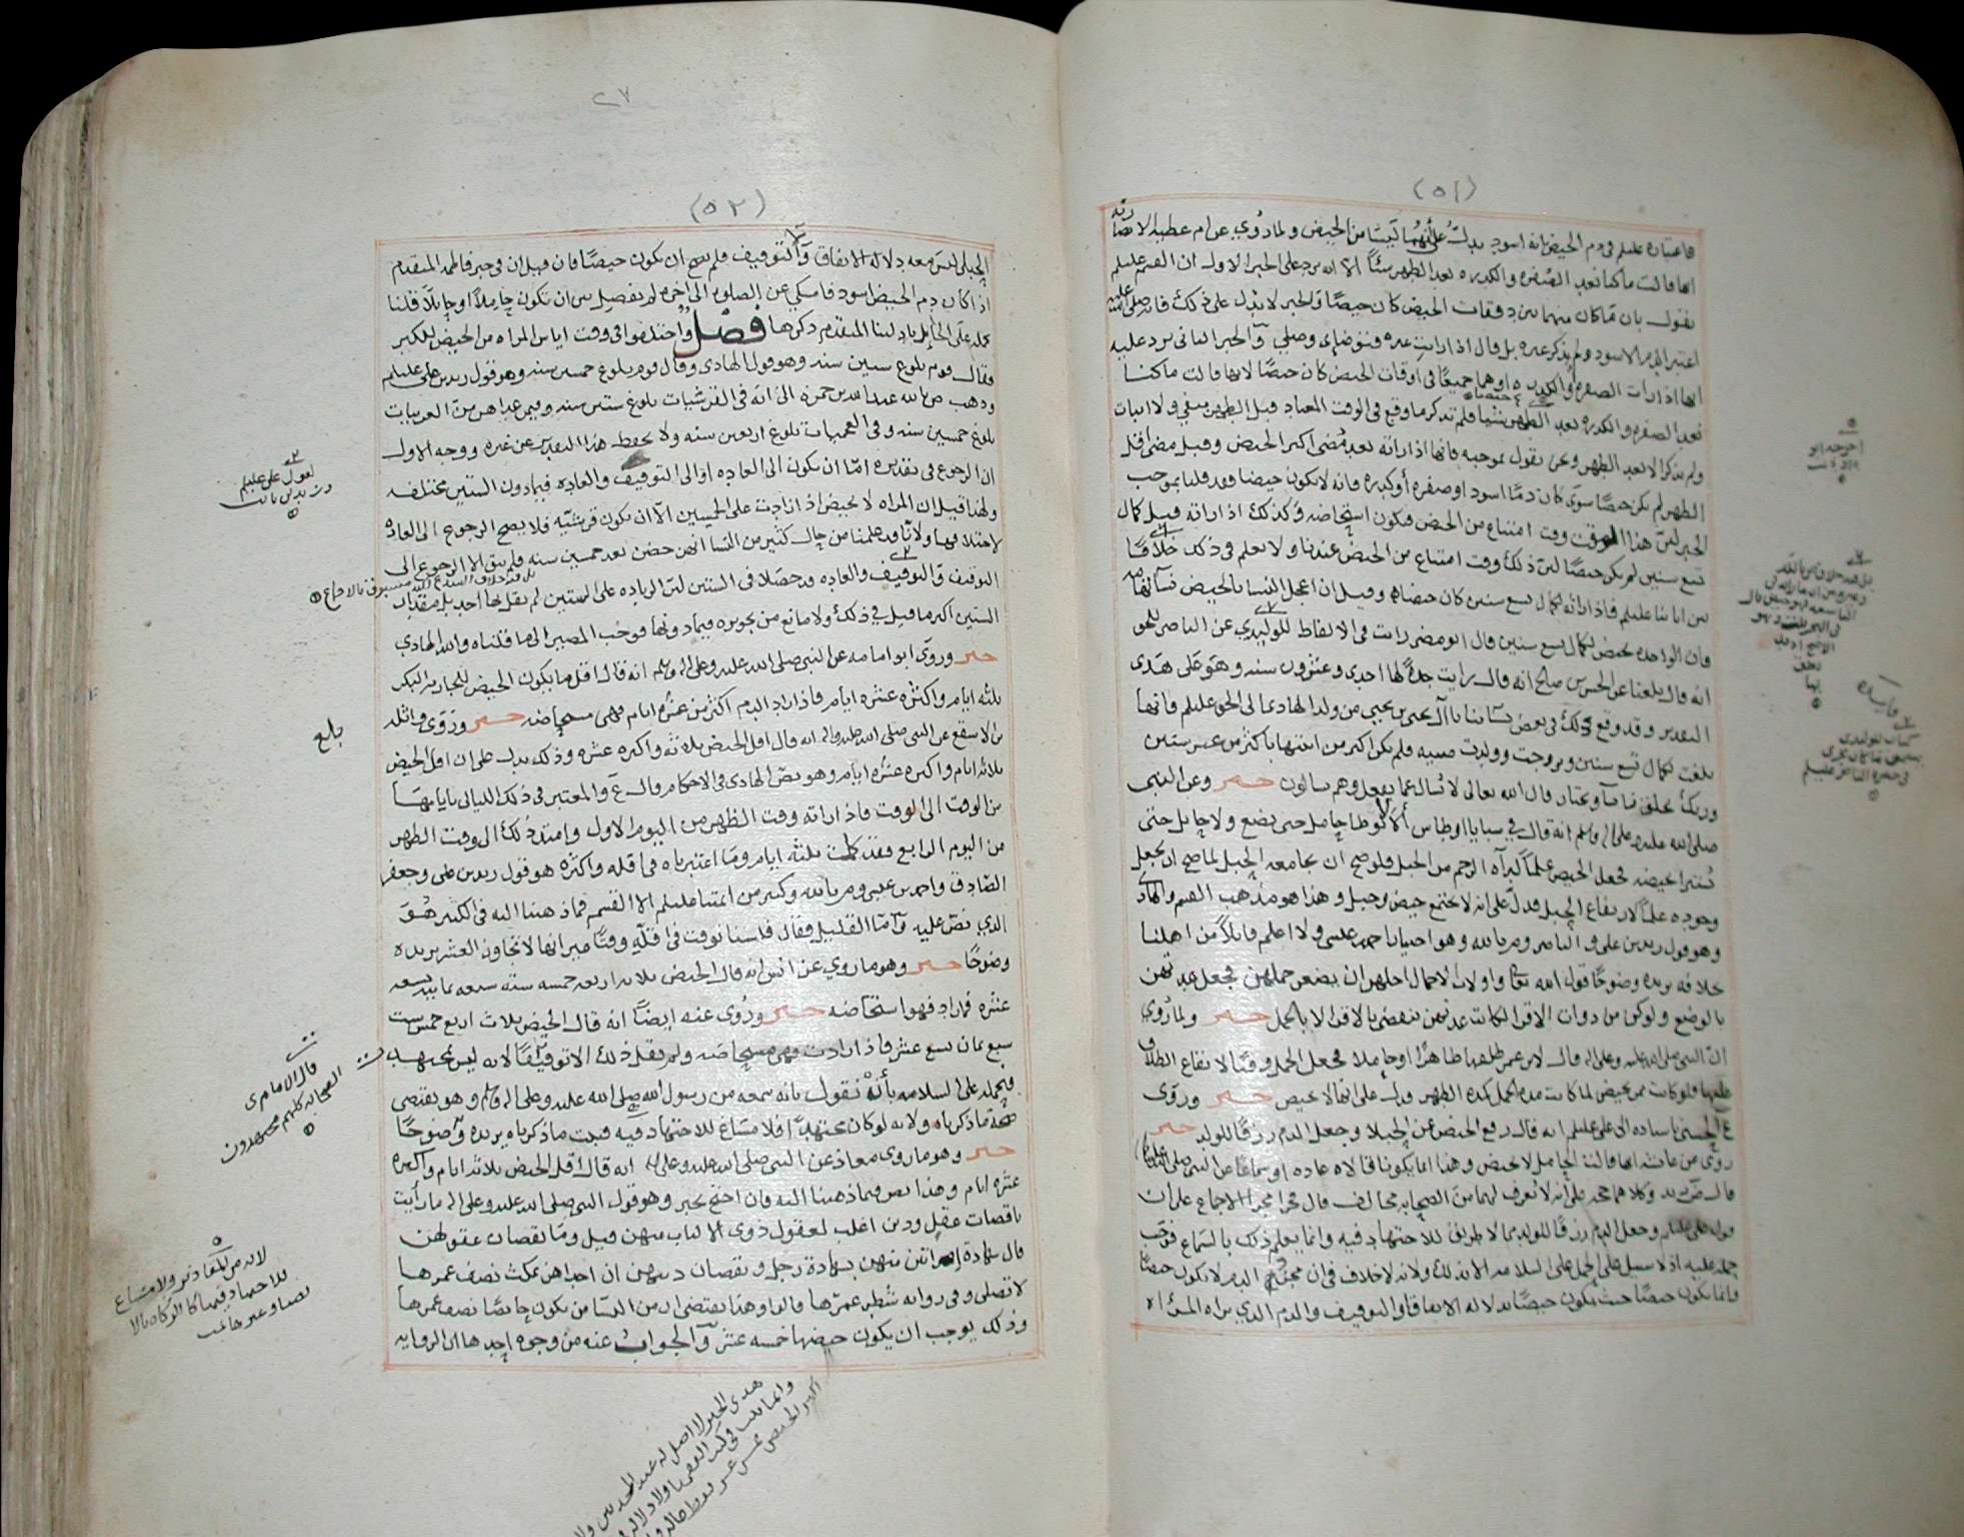 (٥١)
فاعتباره عليلم في دم الحيض انه اسود يدل على أنهما ليسا من الحيض ولما روي عن ام عطيه الانصاريه
انها قالت ما كنا نعد الصفره والكدره بعد الطهر شيئاً الا انه يرد على الخبر الاول ان القسم عليلم
يقول بان ما كان منهما بين دفعات الحيض كان حيضا والخبر لا يدل على ذلك فانه صلى الله عليه
اعتبر الدم الاسود ولم يذكر غيره بل قال اذا رايت غيره فتوضاي وصلي والخبر الثاني يرد عليه
انها اذا رات الصفره والكدره او هما جميعا في اوقات الحيض كان حيضا لانها قالت ما كنا
نعد الصفره والكدره بعد الطهر شيئا فلم تذكر ما وقع في الوقت المعتاد قبل الطهر بنفي ولا اثبات
ولم يذكر الا بعد الطهر ونحن نقول بموجبه فانها اذا راته بعد مضي اكثر الحيض وقبل مضي اقل
الطهر لم يكن حيضا سوى كان دما اسود او صفره أو كدره فانه لا يكون حيضا فقد قلنا بموجب
الخبر لان هذا الوقت وقت امتناع من الحيض فيكون استحاضه وكذلك اذا راته قبل كمال
تسع سنين لم يكن حيضا لان ذلك وقت امتناع من الحيض عندنا ولا نعلم في ذلك خلافا
بين ابائنا عليلم فاذا راته لكمال تسع سنين كان حيضا وقيل ان اعجل النسا بالحيض نسآ تهامه
وان الواحده تحيض لكمال تسع سنين قال ابو مضر رايت في الالفاظ للوليدي عن الناصر للحق
انه قال بلغنا عن الحسن بن صالح انه قال رايت جدة لها احدى وعشرون سنه وهو على هذى
التقدير وقد وقع ذلك في بعض نسآئنا بنات آل يحيى بن يحيى من ولد الهادي الى الحق عليلم فانها
بلغت لكمال تسع سنين وتزوجت وولدت صبيه فلم تكن اكبر من ابنتها باكثر من عشر سنين
وربك يخلق ما يشآ ويختار قال الله تعالى لا يسال عما يفعل وهم يسالون خبر وعن النبي
صلى الله عليه وعلى اله وسلم انه قال في سبايا اوطاس ألا لا توطا حامل حتى تضع ولا حايل حتى
تستبرا بحيضه فجعل الحيض علماً لبرآه الرحم من الحبل فلو صح ان يجامعه الحبل لما صح ان يجعل
وجوده علماً لارتفاع الحبل فدل على انه لا يجتمع حيض وحبل وهذا هو مذهب القسم والهادي
وهو قول زيد بن علي والناصر وم بالله وهو احد قولي احمد بن عيسى ولا اعلم قائلاً من اهلنا
خلافه يزيده وضوحا قول الله تعا واولات الاحمال اجلهن ان يضعن حملهن فجعل عدتهن
بالوضع ولو كن من ذوات الاقرا لكانت عدتهن تنقضي بالاقرا لا بالحمل خبر ولما روي
ان النبي صلى الله عليه وعلى اله قال لابن عمر طلقها طاهرا او حاملا فجعل الحمل وقتا لايقاع الطلاق
عليها فلو كانت ممن تحيض لما كانت مدة الحمل كمدة الطهر فدل على انها لا تحيض خبر وروى
ع الحسني باسناده الى علي عليلم انه قال رفع الحيض عن الحبلا وجعل الدم رزقا للولد خبر
روي عن عائشه انها قالت الحامل لا تحيض وهذا انما يكونا قالاه عاده او سماعا عن النبي صلى الله عليه
قال ض زيد وكلاهما حجه على أنه لا يعرف لهما من الصحابه مخالف قال فجرا مجرا الاجماع على ان
قول علي عليلم وجعل الدم رزقا للولد مما لا طريق للاجتهاد فيه وانما يعلم ذلك بالسماع فوجب
حمله عليه اذ لا سبيل على الحمل على السلامه الا بذلك ولانه لا خلاف في ان الدم لا يكون حيضا
وانما يكون حيضا حيث يكون حيضا بدلاله الاتفاق او التوقيف والدم الذي تراه المرأه
٢٧
(٥٢)
الحبلى ليس معه دلاله الاتفاق والتوقيف فلم يصح ان يكون حيضا فان قيل ان في خبر فاطمه المتقدم
اذا كان دم الحيض اسود فامسكي عن الصلوه الى اخره لم يفصل بين ان تكون حاملا او حايلا قلنا
نحمله على الحايل بادلتنا المتقدم ذكرها فصل واختلفوا في وقت اياس المراه من الحيض للكبر
فقال قوم بلوغ ستين سنه وهو قول الهادي وقال قوم بلوغ خمسين سنه وهو قول زيد بن علي عليلم
وذهب ص بالله عبدالله بن حمزه الى انه في القرشيات بلوغ ستين سنه وفيمن عداهن من العربيات
بلوغ خمسين سنه وفي العجميات بلوغ اربعين سنه ولا يحفظ هذا التقدير عن غيره ووجه الاول
ان الرجوع في تقديره اما ان يكون الى العاده او الى التوقيف والعاده فيما دون الستين مختلفه
ولهذا قيل ان المراه لا تحيض اذا زادت على الخمسين الا ان تكون قرشيه فلا يصح الرجوع الى العاده
لاختلافها ولانا قد علمنا من حال كثير من النسا انهن حضن بعد خمسين سنه فلم يبق الا الرجوع الى
التوقيف والتوقيف والعاده قد حصلا في الستين لان الزياده على الستين لم يقل بها احد بل مقدار
الستين اكبر ما قيل في ذلك ولا مانع من تجويزه فيما دونها فوجب المصير الى ما قلناه والله الهادي
خبر وروى ابو امامه عن النبي صلى الله عليه وعلى اله وسلم انه قال اقل ما يكون الحيض للجاريه البكر
ثلثه ايام واكثره عشره ايام فاذا زاد الدم اكثر من عشره ايام فهي مستحاضه خبر وروى واثله
بن الاسقع عن النبي صلى الله عليه واله انه قال اقل الحيض ثلاثه واكثره عشره وذلك يدل على ان اقل الحيض
ثلاثه ايام واكثره عشره ايام وهو نص الهادي في الاحكام وقال ع والمعتبر في ذلك الليالي بايامها
من الوقت الى الوقت فاذا راته وقت الظهر من اليوم الاول وامتد ذلك الى وقت الظهر
من اليوم الرابع فقد كملت ثلثه ايام وما اعتبرناه في اقله واكثره هو قول زيد بن علي وجعفر
الصادق واحمد بن عيسى وم بالله وكثير من ائمتنا عليلم الا القسم فما ذهبنا اليه في الكثير هو
الذي نص عليه وآما القليل فقال فلسنا نوقت في اقله وقتا غير انها لا تتجاوز العشر يزيده
وضوحا خبر وهو ما روي عن انس انه قال الحيض ثلاثه اربعه خمسه سته سبعه ثمانيه تسعه
عشره فما زاد فهو استحاضه خبر وروى عنه ايضاً انه قال الحيض ثلاث اربع خمس ست
سبع ثمان تسع عشر فاذا زادت فهي مستحاضه ولم يقل ذلك الا توقيفا لانه ليس بمجتهد
فحمله على السلامه بأنه يقول بانه سمعه من رسول الله صلى الله عليه وعلى اله وسلم وهو يقتضي
صحة ما ذكرناه ولانه لو كان مجتهداً فلا مساغ للاجتهاد فيه فثبت ما ذكرناه يزيده وضوحاً
خبر وهو ما روى معاذ عن النبي صلى الله عليه وعلى اله انه قال اقل الحيض ثلاثه ايام واكثره
عشره ايام وهذا نص فيما ذهبنا اليه فان احتج بخبر وهو قول النبي صلى الله عليه وعلى اله ما رأيت
ناقصات عقل ودين اغلب لعقول ذوي الالباب منهن قيل وما نقصان عقولهن
قال شهادة إمراتين منهن بشهادة رجل ونقصان دينهن ان احداهن تمكث نصف عمرها
لا تصلي وفي روايه شطر عمرها قالوا وهذا يقتضي ان من النسا من يكون حايضا نصف عمرها
وذلك يوجب ان يكون حيضها خمسه عشر والجواب عنه من وجوه احدها ان الروايه
بلغ
قال الامام ي
الصحابه كلهم مجتهدون
هذى الخبر لا اصل له عند المحدثين